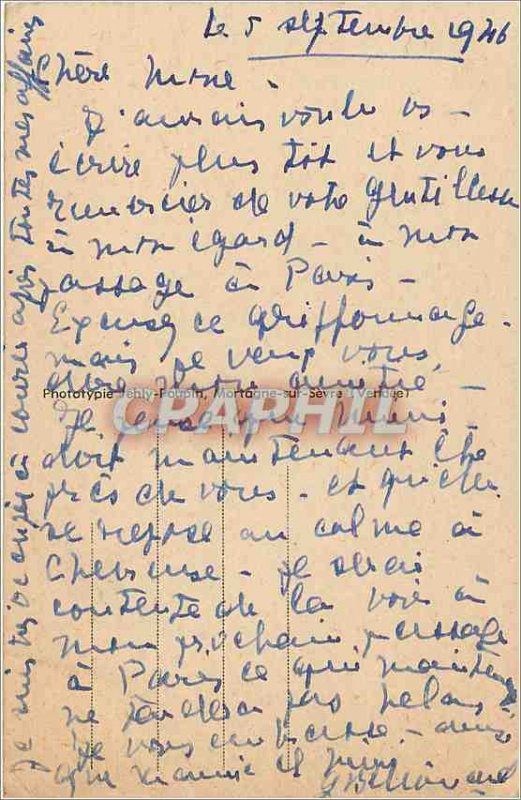 Le 5 septembre 1946
Chère Mme -
J'aurais voulu vs -
écrire plus tôt et vous
remercier de votre gentillesse
à mon égard - à mon
passage à Paris -
Excusez ce griffonnage.
mais je veux vous
dire mon amitié -
Phototypie Jehly-Poupin, Mortagne-sur-Sèvre (Vendée)
CPAPHIL
Je que
doit maintenant être
près de vous - et qu'elle
se repose au calme à
Chevreuse - je serai
contente de la voir à
mon prochain passage
à Paris ce qui maintenant
ne tardera pas
Je vous embrasse - ainsi
que et
Je suis occupée à courir après toutes mes affaires